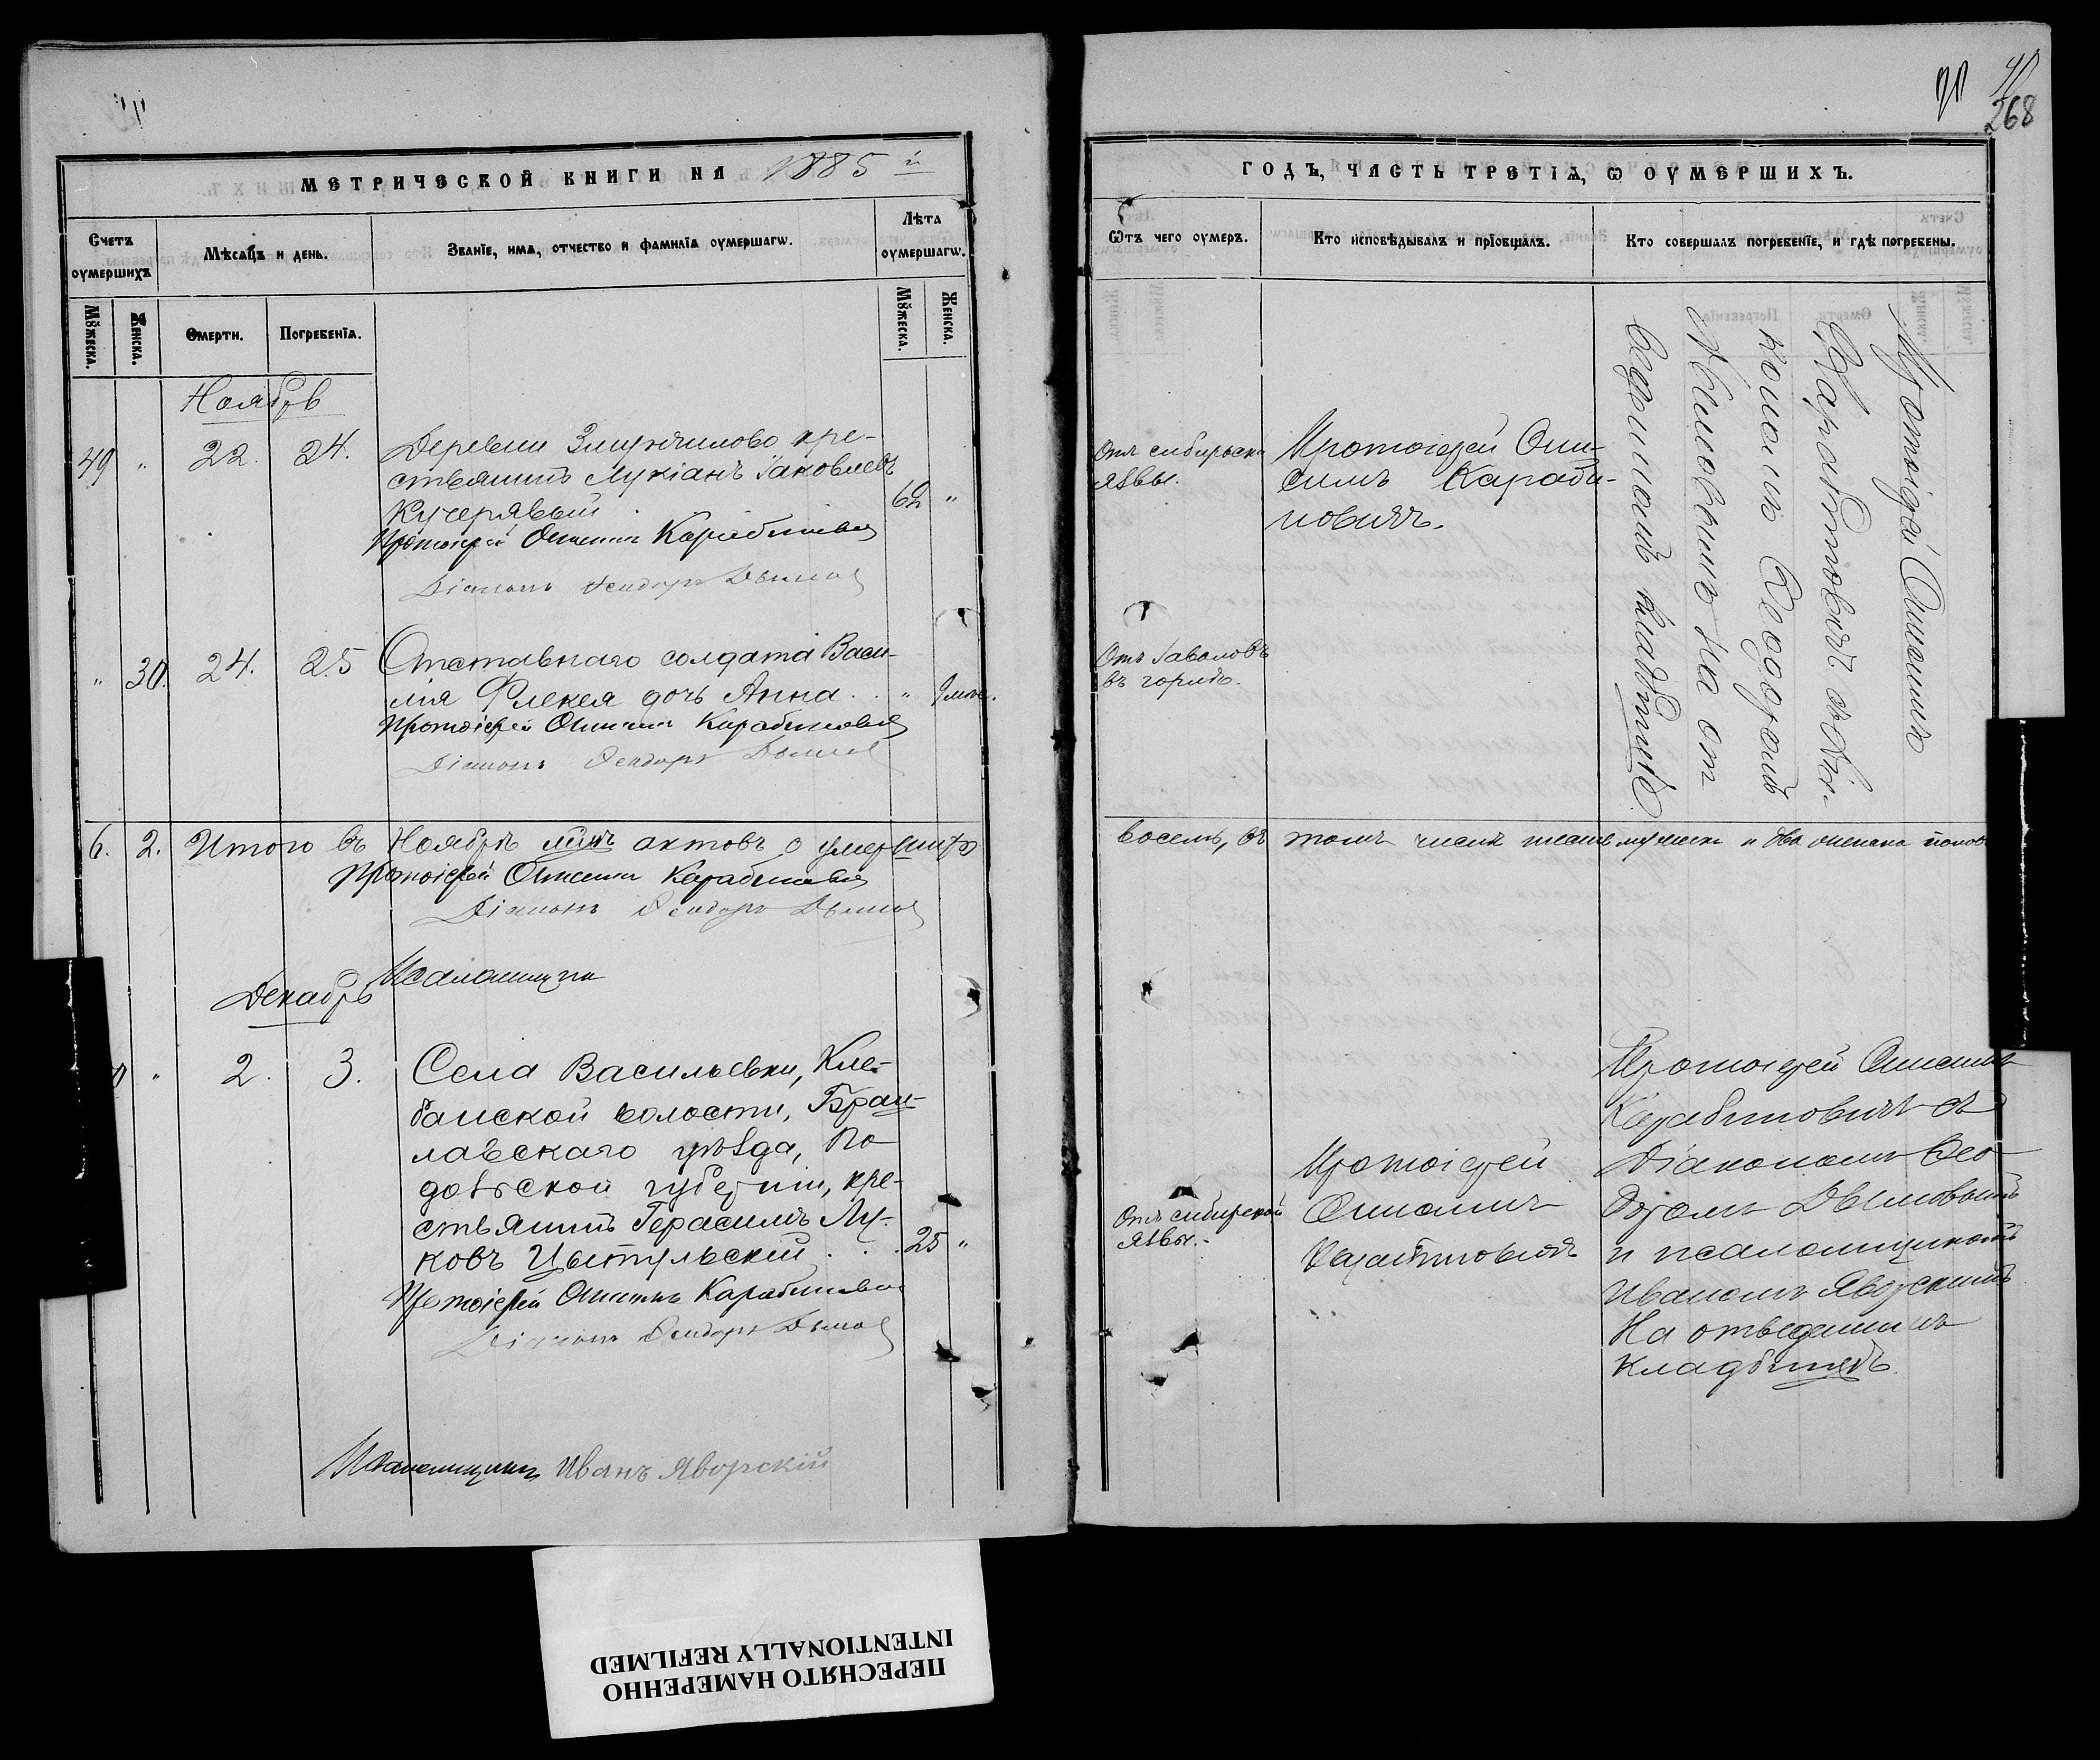 МЕТРИЧЕСКОЙ КНИГИ НА 1885 й
Счетъ оумершихъ
Мѣсяцъ и день.
Званіе, имя, отчество и фамилія оумершагѡ.
Лѣта оумершагѡ.
Мꙋжеска.
Женска.
Смерти.
Погребенія.
Мꙋжеска.
Женска.
Ноябрь
49 " 22. 24. Деревни кре-
стьянинъ Лукіанъ Іаковлевъ
Кучерявый 62 "
Протоіерей Карабиневич
Діаконъ Феодоръ Дымов
" 30. 24. 25 Отставнаго солдата Васи-
лія Флекея дочь Анна . . "
Протоіерей Карабиневич
Діаконъ Феодоръ Дымов
6. 2. Итого въ Ноябрѣ актовъ о умершихъ
Протоіерей Карабиневич
Діаконъ Феодоръ Дымов
Псаломщикъ
Декабрь
" 2. 3. Села Васильевки, Кле-
банской волости, Брац-
лавскаго уѣзда, По-
дольской губерніи, кре-
стьянинъ Герасимъ Лу-
ковъ Цытульскій . . . 25 "
Протоіерей Карабиневич
Діаконъ Феодоръ Дымов
Псаломщикъ Иванъ Яворскій
268
ГОДЪ, ЧАСТЬ ТРЕТІѦ, Ѡ ОУМЕРШИХЪ.
Ѿтъ чего оумеръ.
Кто исповѣдывалъ и пріобщалъ.
Кто совершалъ погребеніе, и гдѣ погребены.
Отъ сибирской
язвы.
Протоіерей Они-
симъ Караби-
новичъ.
Протоіерей Онисимъ
Карабиновичъ съ діа-
кономъ Феодоромъ
Дымовымъ на от
веденномъ кладбищѣ
Отъ заваловъ
въ горлѣ.
восемь, въ томъ числѣ шесть мужеска и два женска полов
Отъ сибирской
язвы.
Протоіерей
Онисимъ
Карабиновичъ
Протоіерей Онисимъ
Карабиновичъ съ
Діакономъ Фео-
доромъ Дымовымъ
и псаломщикомъ
Иваномъ Яворскимъ
На отведенномъ
кладбищѣ.
ПЕРЕСНЯТО НАМЕРЕННО
INTENTIONALLY REFILMED